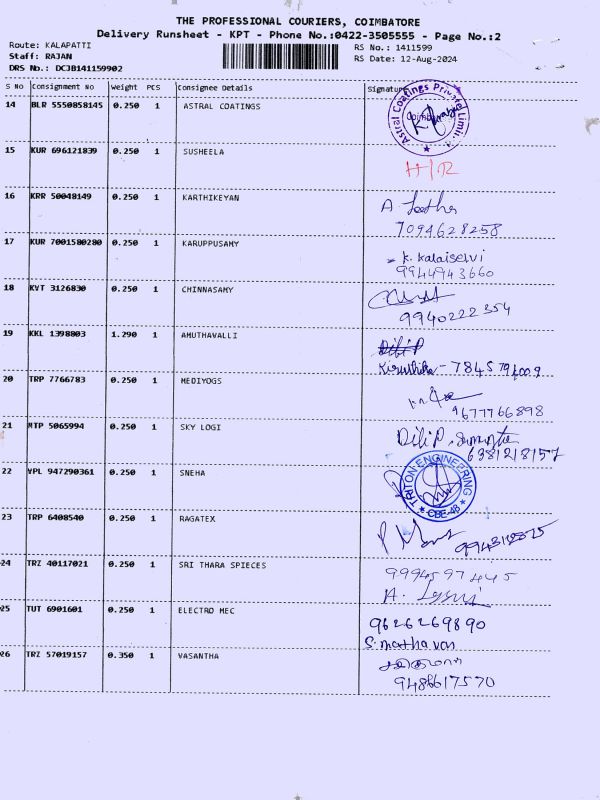 THE PROFESSIONAL COURIERS, COIMBATORE
Delivery Runsheet - KPT - Phone No.:0422-3505555 - Page No.:2
Route: KALAPATTI RS No.: 1411599
Staff: RAJAN RS Date: 12-Aug-2024
DRS No.: DCJB141159902
S No Consignment No Weight PCS Consignee Details Signature
14 BLR 5550858145 0.250 1 ASTRAL COATINGS Astral Coatings Private Limit
15 KUR 696121839 0.250 1 SUSHEELA H/R
16 KRR 50048149 0.250 1 KARTHIKEYAN A.
7094628258
17 KUR 7001580280 0.250 1 KARUPPUSAMY K. Kalaiselvi
9944943660
18 KVT 3126830 0.250 1 CHINNASAMY
9940222354
19 KKL 1398803 1.290 1 AMUTHAVALLI
Kiruthika - 7845794009
20 TRP 7766783 0.250 1 MEDIYOGS
9677766898
21 MTP 5065994 0.250 1 SKY LOGI Dili P.
6381218157
22 VPL 947290361 0.250 1 SNEHA TRITON ENGINEERING
CBE-48
23 TRP 6408540 0.250 1 RAGATEX
24 TRZ 40117021 0.250 1 SRI THARA SPIECES 9994597445
A.
25 TUT 6901601 0.250 1 ELECTRO MEC 9626269890
S. mathavan
26 TRZ 57019157 0.350 1 VASANTHA
9486617570